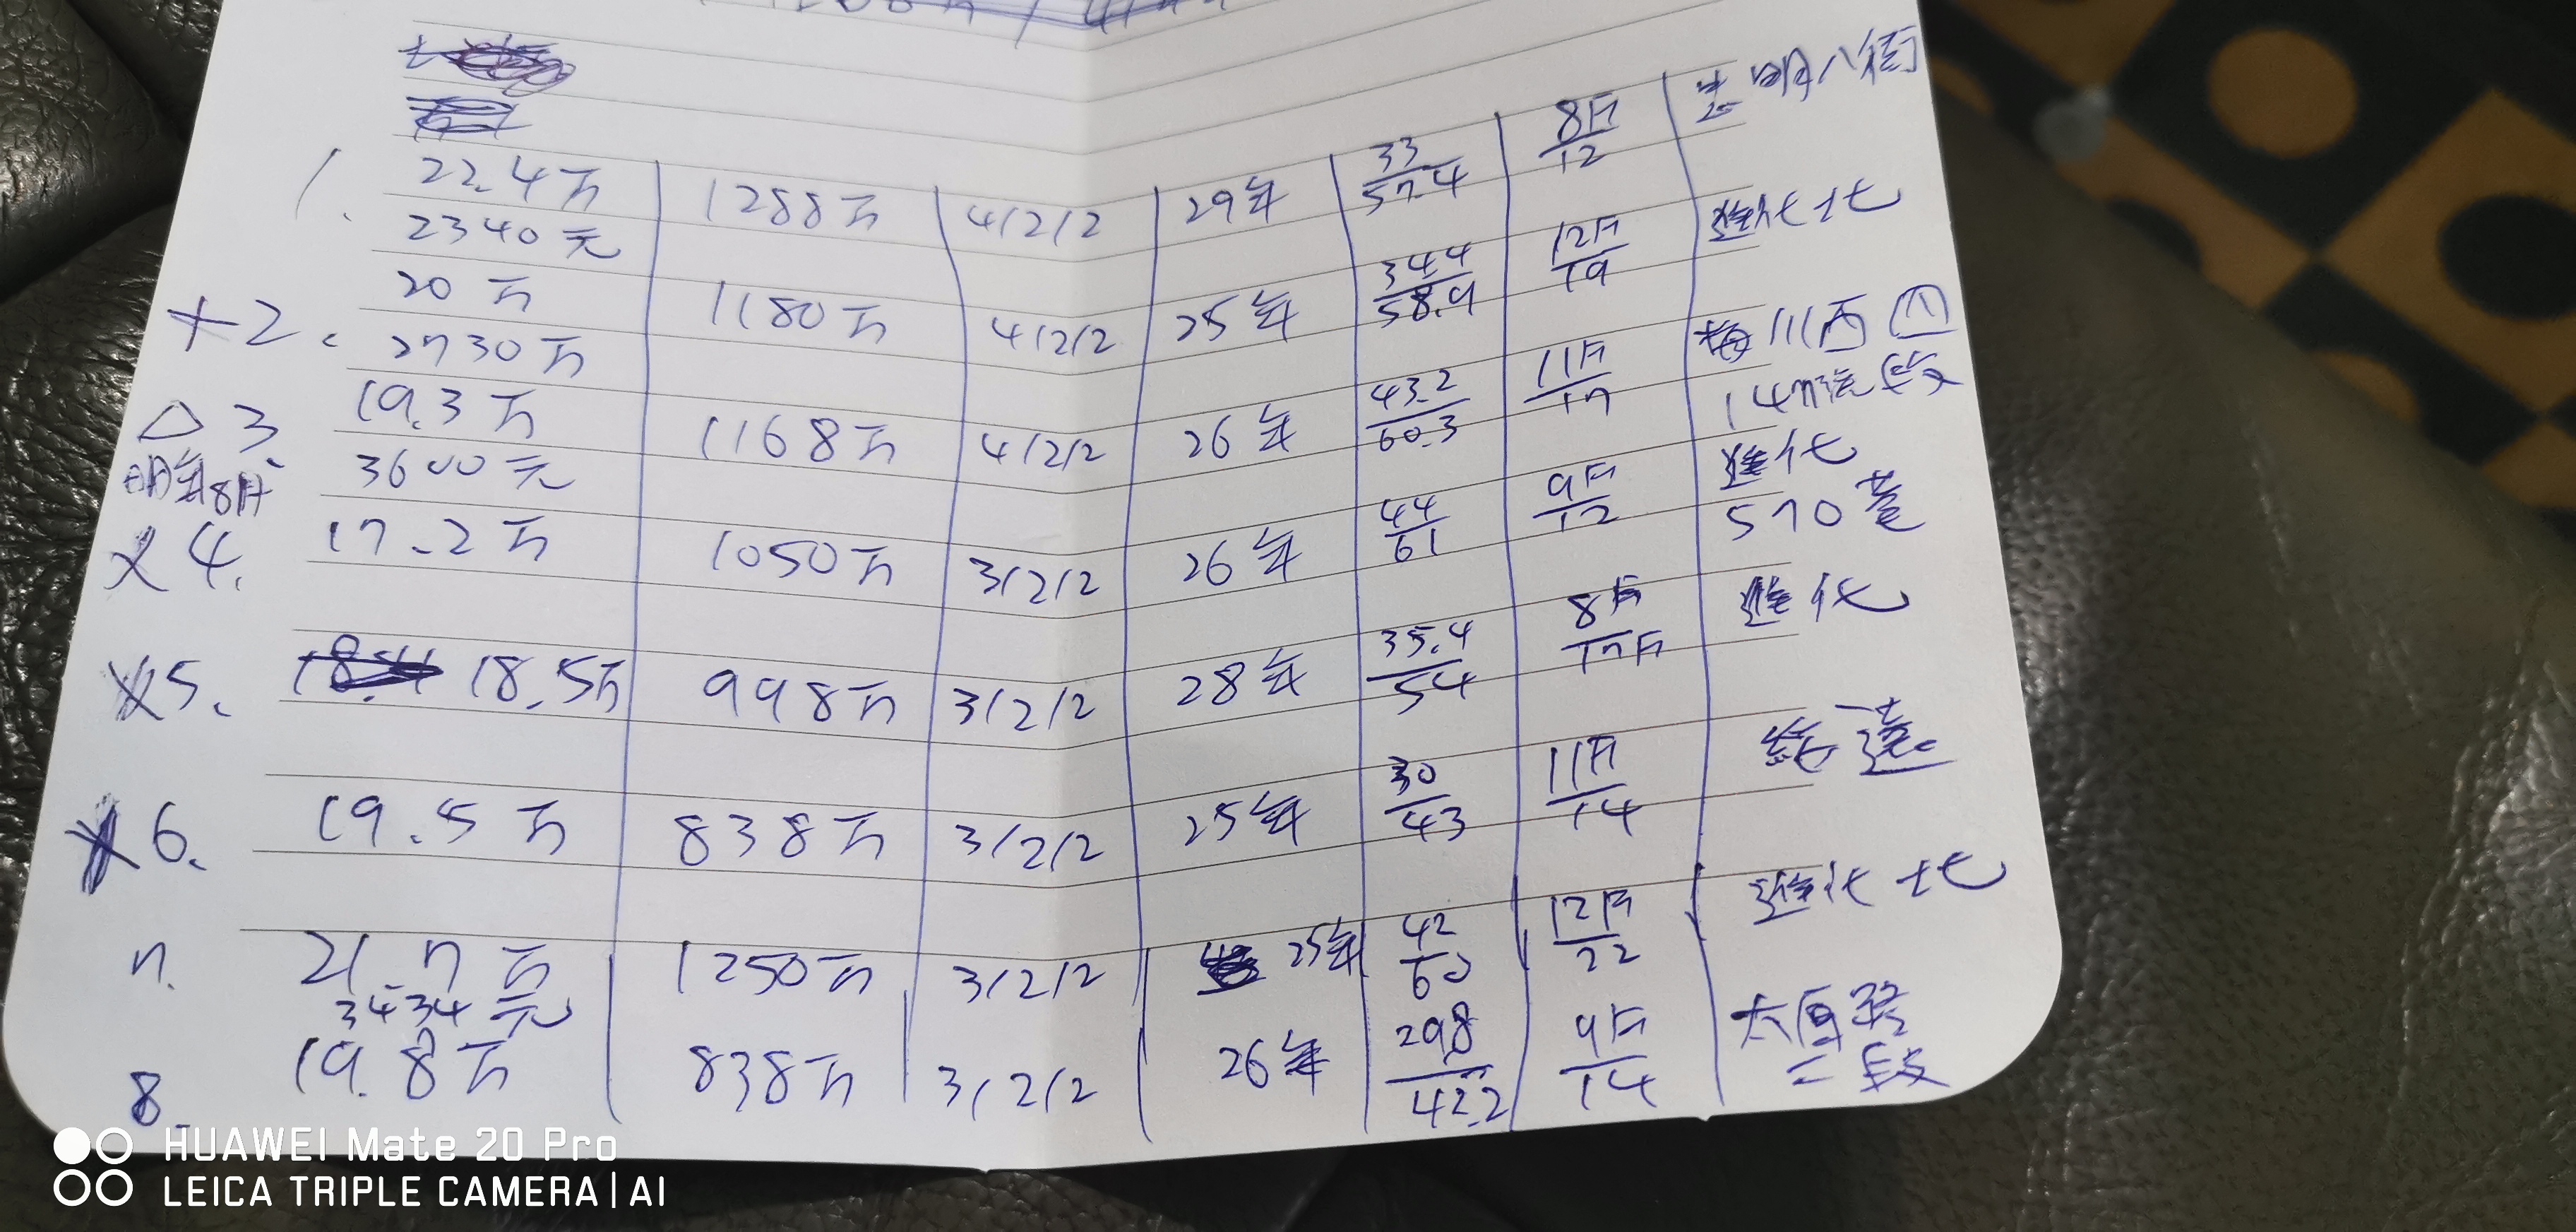 1. 22.4万 1288万 4/2/2 29年 33/57.4 8F/12 志明八街
2340元
+2. 20万 1180万 4/2/2 25年 34.4/58.9 12F/19 進化北
2730万
△3. 19.3万 1168万 4/2/2 26年 43.2/60.3 11F/17 梅川西四
明年8月 3600元 147號 段
X4. 17.2万 1050万 3/2/2 26年 44/61 9F/12 進化
570號
X5. 18.5万 998万 3/2/2 28年 35.4/54 8F/17F 進化
X6. 19.5万 838万 3/2/2 25年 30/43 11F/14
7. 21.7万 1250万 3/2/2 25年 42/60 12F/22 進化北
3434元
8. 19.8万 838万 3/2/2 26年 29.8/42.2 9F/14 太原路
二段
HUAWEI Mate 20 Pro
LEICA TRIPLE CAMERA | AI